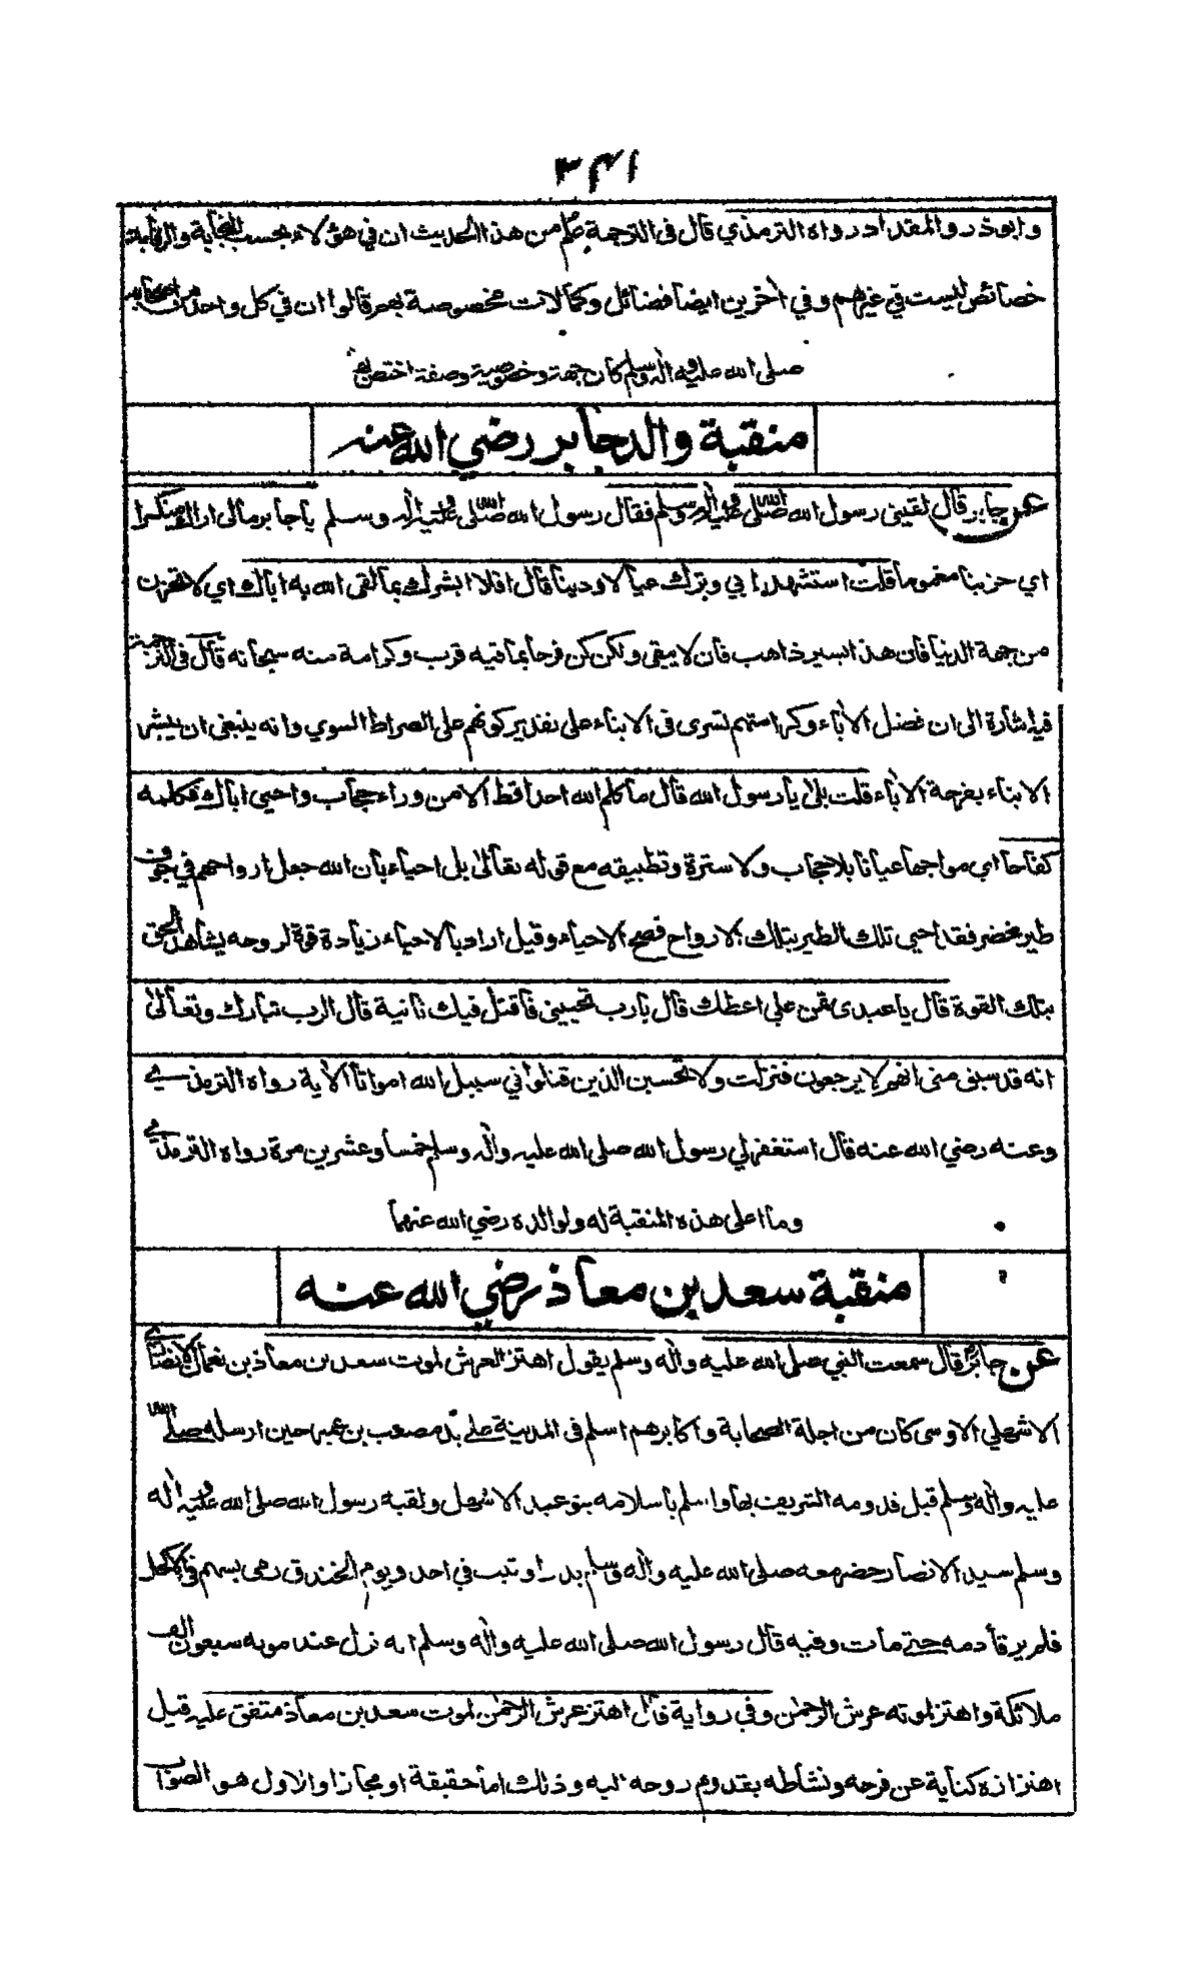 ٣٤١
وابوذر والمقداد رواه الترمذي قال فى الترجمة علم من هذا الحديث ان في هؤلاء بحسب النجابة والرقابة
خصائص ليست في غيرهم وفي اخرين ايضا فضائل وكمالات مخصوصة بهم قالوا ان في كل واحد من اصحابه
صلى الله عليه واله وسلم كان جهة وخصوصية وصفة اختص به
منقبة والد جابر رضي الله عنه
عن جابر قال لقيني رسول الله صلى الله عليه واله وسلم فقال رسول الله صلى الله عليه واله وسلم يا جابر مالى اراك منكسرا
اي حزينا مغموما قلت استشهد ابي وترك عيالا ودينا قال افلا ابشرك بما لقى الله به اباك اي لا تحزن
من جهة الدنيا فان هذا يسير ذاهب فان لا يبقى ولكن كن فرحا بما فيه قرب وكرامة منه سبحانه قال فى الترجمة
فيه اشارة الى ان فضل الاباء وكرامتهم تسرى فى الابناء على تقدير كونهم على الصراط السوي وانه ينبغى ان يبشر
الابناء بفرحة الاباء قلت بلى يا رسول الله قال ما كلم الله احدا قط الا من وراء حجاب واحيى اباك فكلمه
كفاحا اي مواجها عيانا بلا حجاب ولا سترة وتطبيقه مع قوله تعالى بل احياء بان الله جعل ارواحهم في جوف
طير خضر فقد احيى تلك الطير بتلك الارواح فصح الاحياء وقيل اراد بالاحياء زيادة قوة لروحه يشاهد الحق
بتلك القوة قال يا عبدى تمن علي اعطك قال يا رب تحييني فاقتل فيك ثانية قال الرب تبارك وتعالى
انه قد سبق منى انهم لا يرجعون فنزلت ولا تحسبن الذين قتلوا في سبيل الله امواتا الاية رواه الترمذي
وعنه رضي الله عنه قال استغفر لي رسول الله صلى الله عليه واله وسلم خمسا وعشرين مرة رواه الترمذي
وما اعلى هذه المنقبة له ولوالده رضي الله عنهما
منقبة سعد بن معاذ رضي الله عنه
عن جابر قال سمعت النبي صلى الله عليه واله وسلم يقول اهتز العرش لموت سعد بن معاذ بن نعمان الانصاري
الاشهلي الاوسى كان من اجلة الصحابة واكابرهم اسلم فى المدينة على يد مصعب بن عمير حين ارسله صلى الله
عليه واله وسلم قبل قدومه الشريف بها واسلم باسلامه بنو عبد الاشهل ولقبه رسول الله صلى الله عليه واله
وسلم سيد الانصار حضر معه صلى الله عليه واله وسلم بدرا وثبت في احد ويوم الخندق رمى بسهم في الاكحل
فلم يرقأ دمه حتى مات وفيه قال رسول الله صلى الله عليه واله وسلم انه نزل عند موته سبعون الف
ملائكة واهتز لموته عرش الرحمن وفي رواية قال اهتز عرش الرحمن لموت سعد بن معاذ متفق عليه قيل
اهتزازه كناية عن فرحه ونشاطه بقدوم روحه اليه وذلك اما حقيقة او مجازا والاول هو الصواب